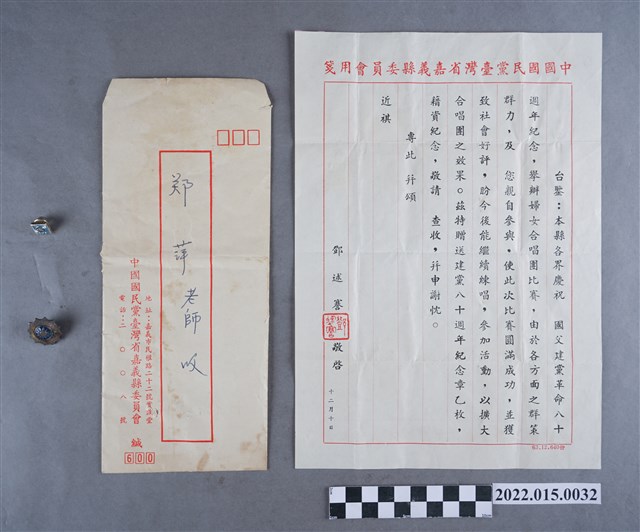 中國國民黨臺灣省嘉義縣委員會用箋
台鑒：本縣各界慶祝　國父建黨革命八十
週年紀念，舉辦婦女合唱團比賽，由於各方面之群策
群力，及　您親自參與，使此次比賽圓滿成功，並獲
致社會好評，盼今後能繼續練唱，參加活動，以擴大
合唱團之效果。茲特贈送建黨八十週年紀念章乙枚，
藉資紀念，敬請　查收，幷申謝忱。
專此　幷頌
近祺
鄧述　敬啓
十二月十日
鄭萍老師收
地址：嘉義市民權路二十二號
電話：二〇〇八號
中國國民黨臺灣省嘉義縣委員會　緘
600
2022.015.0032